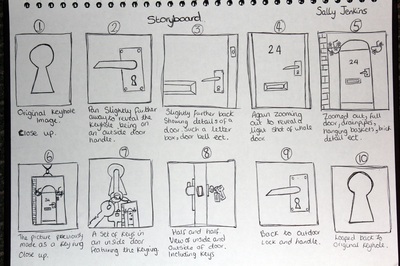 Storyboard
Sally Jenkins
1
2
3
4
5
24
24
Original Keyhole
Image.
Close up.
Pan Slightly further
away to reveal the
Keyhole being on
an outside door
handle.
Slightly further back
Showing details of a
door, Such a letter
box, door bell ect.
Again zooming
out to reveal
light shot of whole
door.
Zoomed out, full
door, drainpipes,
hanging baskets, brick
detail ect.
6
7
8
9
10
The picture previously
made as a Keyring
Close up.
A Set of Keys in
an inside door
featuring the Keyring.
Half and half
View of inside and
Outside of door.
Including Keys
Back to outdoor
Lock and handle.
Looped back to
Original Keyhole.